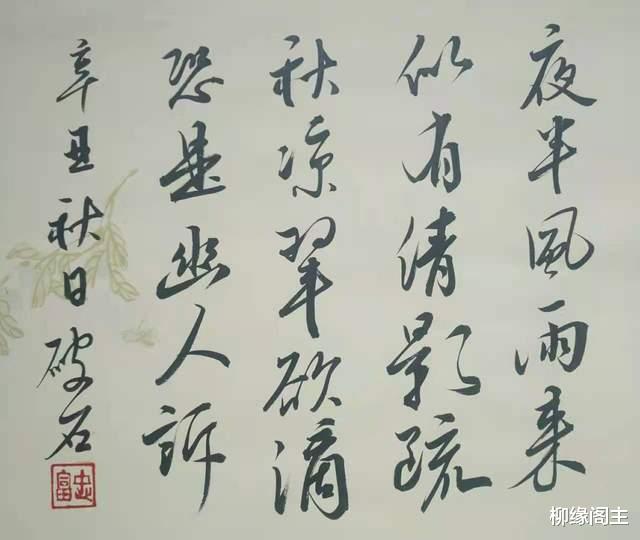 夜半風雨来
似有清影疏
秋凉翠欲滴
恐是幽人訴
辛丑秋日破石
忠富
柳缘阁主